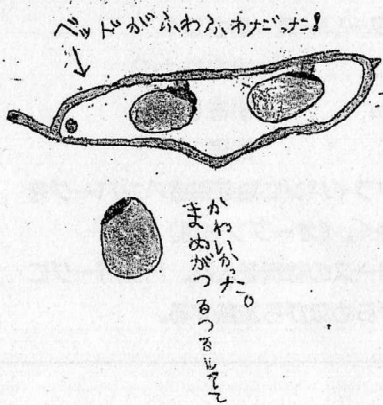 ベッドがふわふわだった!
まめがつるつるしてて
かわいかった。